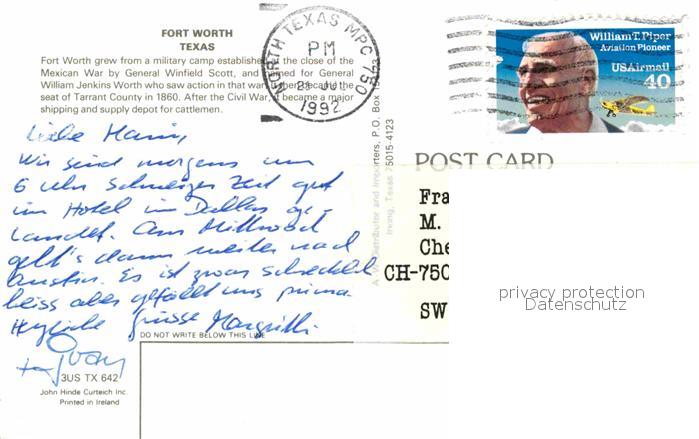 FORT WORTH
TEXAS
Fort Worth grew from a military camp established at the close of the
Mexican War by General Winfield Scott, and named for General
William Jenkins Worth who saw action in that war. became the
seat of Tarrant County in 1860. After the Civil War, it became a major
shipping and supply depot for cattlemen.
NORTH TEXAS MPC 750
PM
JUL
1992
William T. Piper
Aviation Pioneer
US Airmail
40
Liebe Mamy
Wir sind morgens um
6 Uhr Schweizer Zeit gut
im Hotel in Dallas ge-
landet. Am Mittwoch
geht's dann weiter nach
Austin. Es ist zwar schrecklich
heiss aber gefällt uns prima
Herzliche Grüsse Margrith
DO NOT WRITE BELOW THIS LINE
3US TX 642
John Hinde Curteich Inc.
Printed in Ireland
Distributor and Importers, P.O. Box
Irving, Texas 75015-4123
POST CARD
Fra
M.
Che
CH-750
SW
privacy protection
Datenschutz